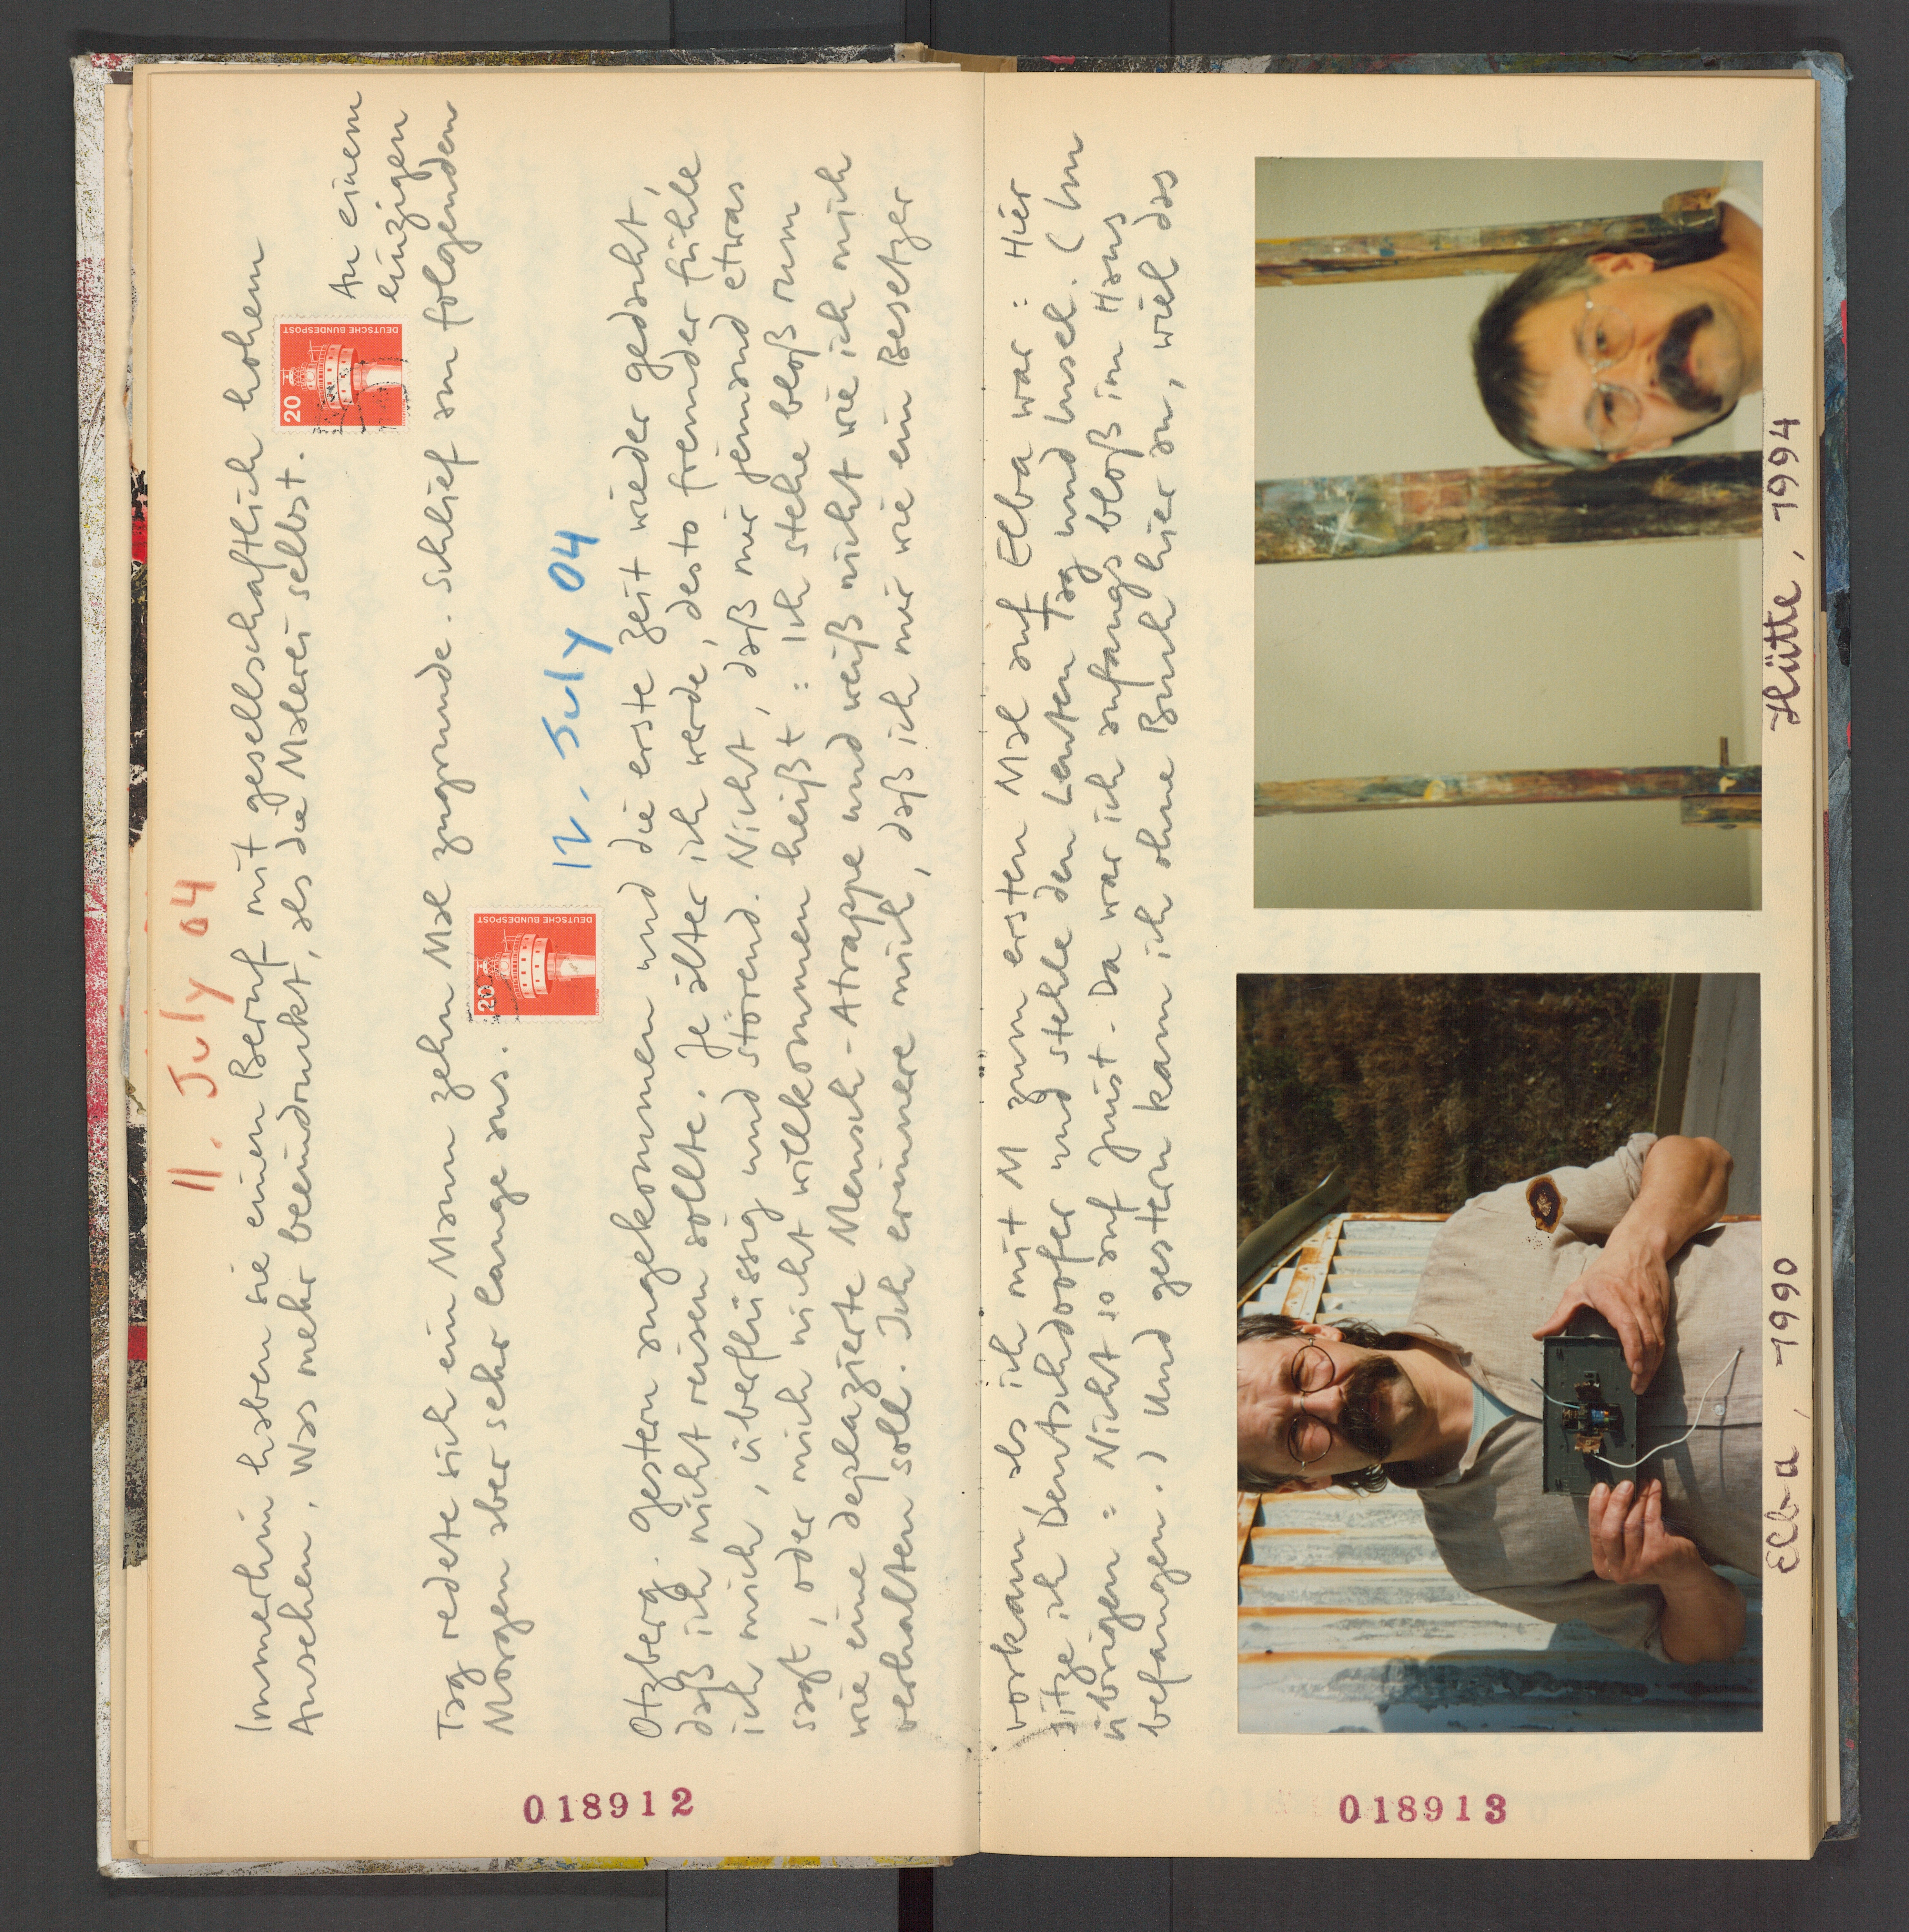 11. July 04
Immerhin haben sie einen Beruf mit gesellschaftlich hohem
Ansehen, was mehr beeindruckt, als die Malerei selbst.
20
DEUTSCHE BUNDESPOST
An einem
einzigen
Tag redete sich ein Mann zehn Mal zugrunde. Schlief am folgenden
Morgen aber sehr lange aus.
20
DEUTSCHE BUNDESPOST
12. July 04
Otzberg. Gestern angekommen und die erste Zeit wieder gedacht,
daß ich nicht reisen sollte. Je älter ich werde, desto fremder fühle
ich mich, überflüssig und störend. Nicht, daß mir jemand etwas
sagt, oder mich nicht willkommen heißt: ich stehe bloß rum
wie eine deplazierte Mensch-Atrappe und weiß nicht wie ich mich
verhalten soll. Ich erinnere mich, daß ich mir wie ein Besetzer
018912
vorkam, als ich mit M zum ersten Mal auf Elba war: Hier
sitze ich Deutschdoofer und stehle den Leuten Tag und Insel. (Im
übrigen: Nicht so auf Juist. Da war ich anfangs bloß im Haus
befangen.) Und gestern kam ich ohne Buch hier an, wiel das
Elba, 1990
Hütte, 1994
018913